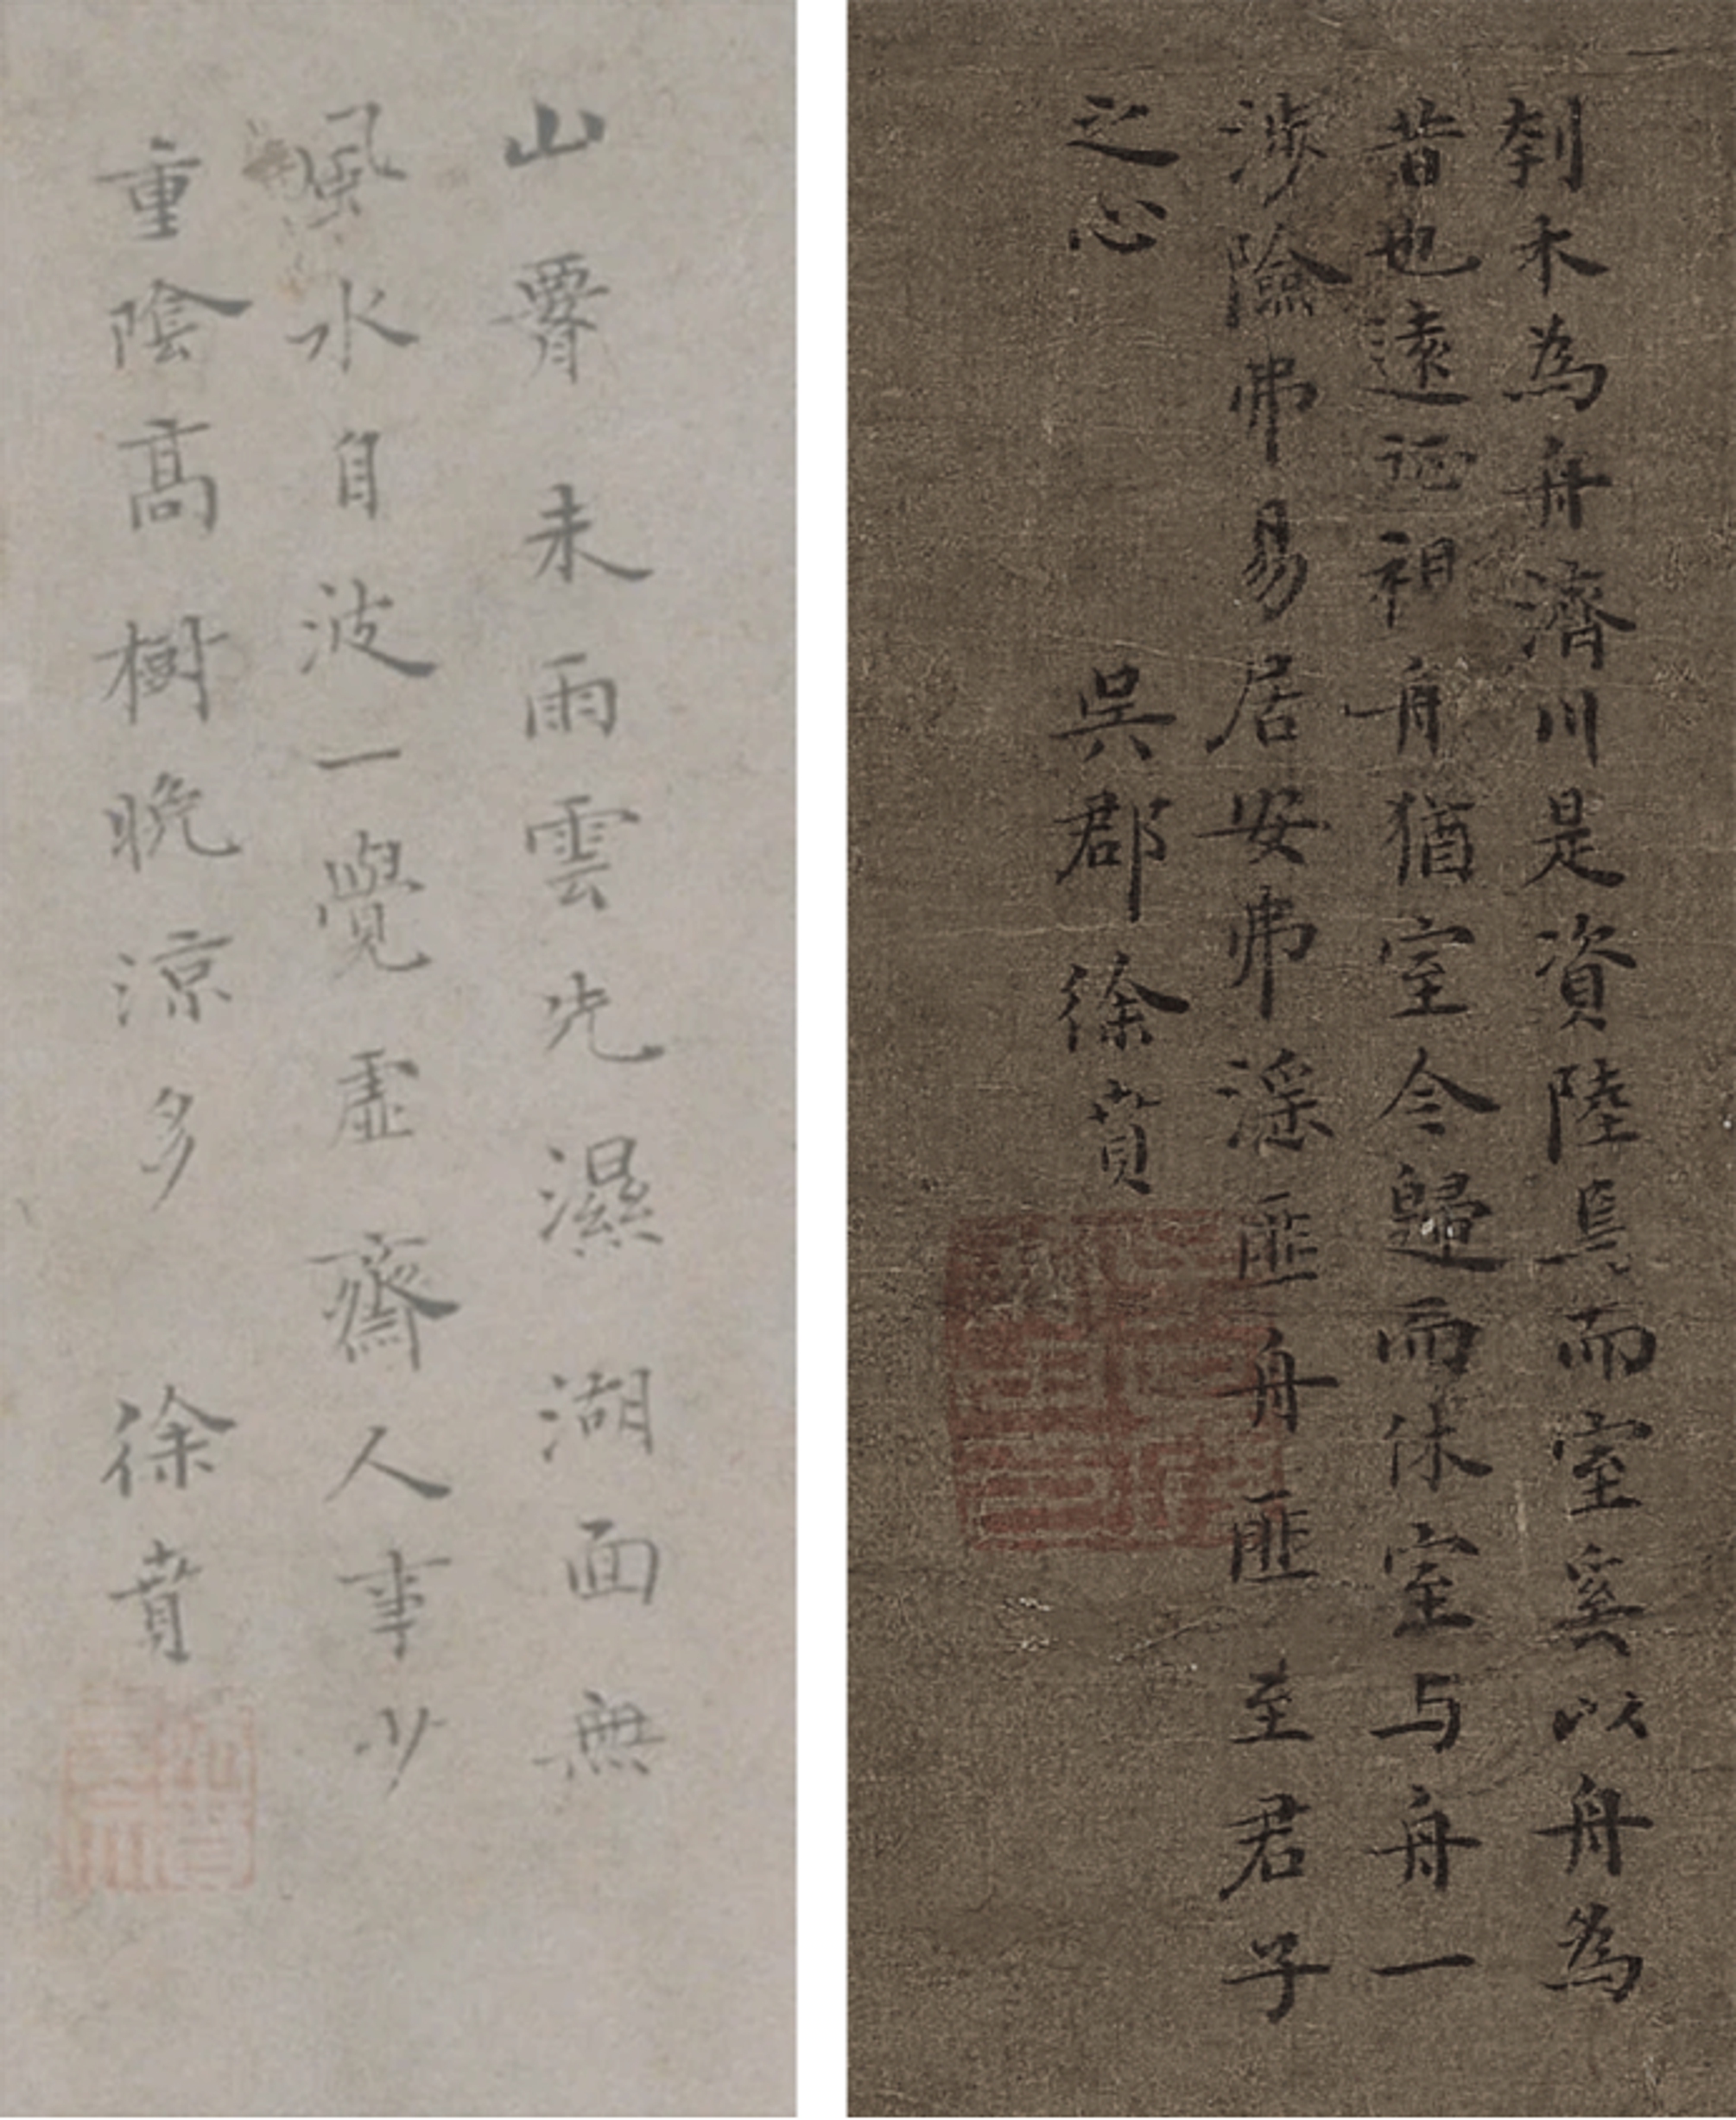 刳木為舟濟川是資陸焉而室奚以舟為
昔也遠祖舟猶室今歸而休室与舟一
涉險弗易居安弗滛匪舟匪至君子
之心 吳郡徐賁
山未雨雲先濕湖面無
風水自波一覺虛齋人事少
重陰髙樹晚涼多 徐賁